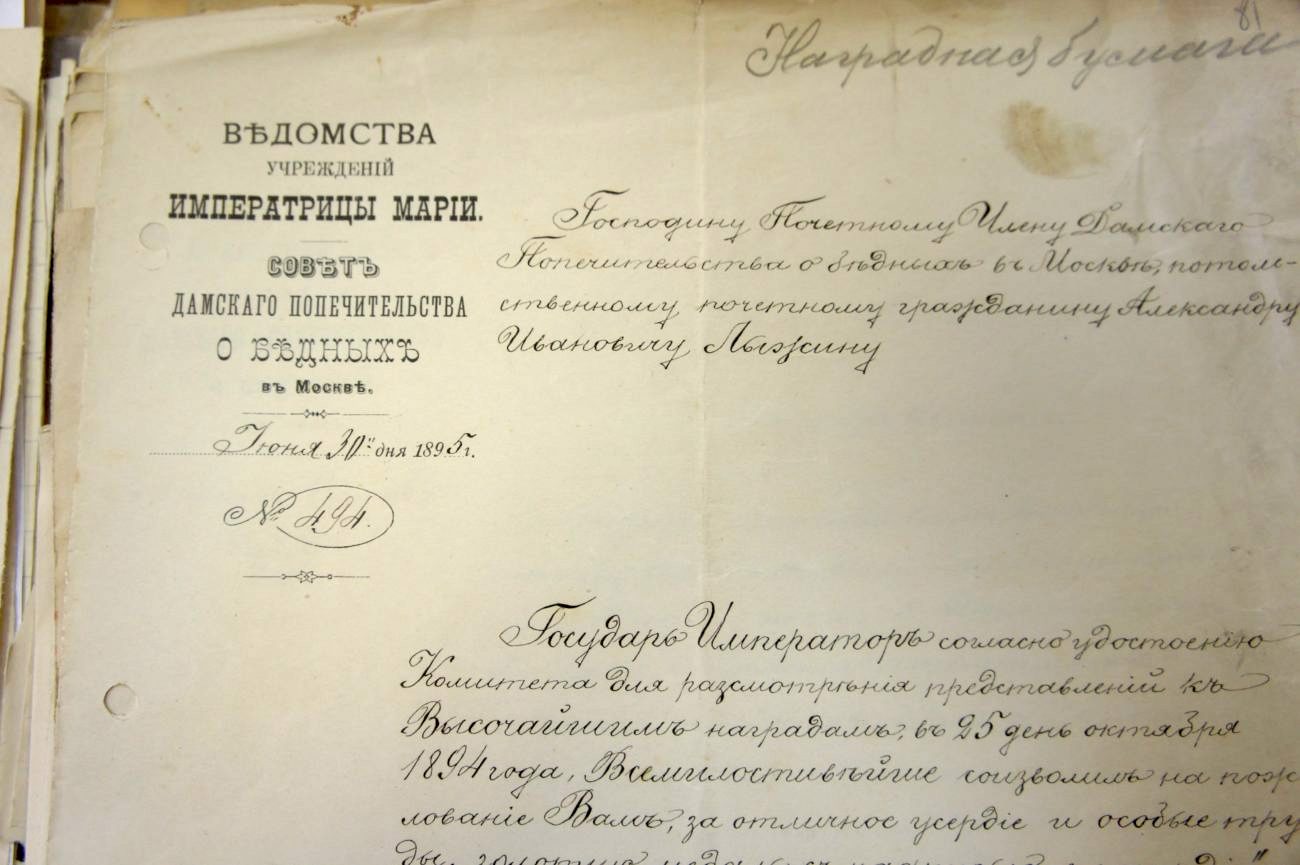 81
Наградная бумага
ВѢДОМСТВА
УЧРЕЖДЕНІЙ
ИМПЕРАТРИЦЫ МАРІИ.
СОВѢТЪ
ДАМСКАГО ПОПЕЧИТЕЛЬСТВА
О БѢДНЫХЪ
въ Москвѣ.
Іюня 30" дня 1895 г.
№ 494.
Господину Почетному Члену Дамскаго
Попечительства о бѣдныхъ въ Москвѣ, потом-
ственному почетному гражданину Александру
Ивановичу Лыжину
Государь Императоръ согласно удостоенію
Комитета для разсмотрѣнія представленій къ
Высочайшимъ наградамъ, въ 25 день октября
1894 года, Всемилостивѣйше соизволилъ на пож
лованіе Вамъ, за отличное усердіе и особые тру
ды, золотой